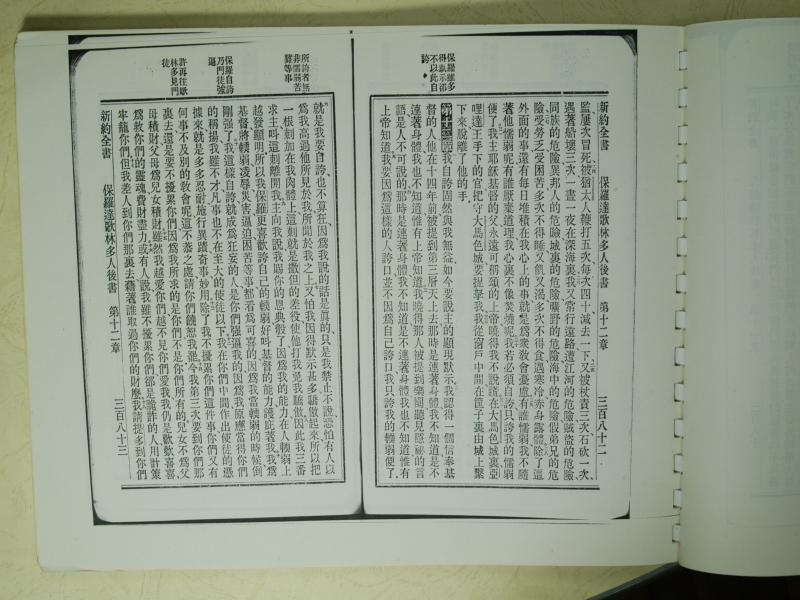 新約全書 保羅達歌林多人後書 第十二章 三百八十二
監屢次冒死被猶太人鞭打五次每次四十減去一下又被杖責三次石砍一次
遇著船壞三次一晝一夜在深海裏我又常行遠路遭江河的危險賊盜的危險
同族的危險異邦人的危險城裏的危險曠野的危險海中的危險假弟兄的危
險受勞乏受困苦多次不得睡又飢又渴多次不得食遇寒冷赤身露體除了這
外面的事還有每日堆積在我心上的事就是爲衆敎會憂慮有誰懦弱我不隨
著他懦弱呢有誰厭棄道理我心裏不像焚燒呢我若必須自誇只誇我的懦弱
便了我主耶穌基督的父永遠可稱頌的上帝曉得我不說謊在大馬色城裏亞
哩達王手下的官把守大馬色城要捉拏我我從窗戶中間在筐子裏由城上縋
下來脫離了他的手
第十二章 我自誇固然與我無益如今要說主的顯現默示我認得一個信奉基
督的人他在十四年前被提到第三層天上去那時是連著身體我不知道是不
連著身體我也不知道惟有上帝知道我曉得那人被提到樂園聽見隱祕的言
語是人不可說的那時是連著身體我不知道是不連著身體我也不知道惟有
上帝知道我要因爲這樣的人誇口並不因爲自己誇口我只誇我的輭弱便了
保羅雖多得默示卻不以此自誇
就是我要自誇也不算狂因爲我說的話是眞的只是我禁止不說恐怕有人以
爲我高過他所見於我所聞於我之上又怕我因得默示甚多驕傲起來所以把
一根刺加在我肉體上這刺就是撒但的差役使他打我免我驕傲因此我三番
求主呌這刺離開我主向我說我賜你的恩典彀了因爲我的能力在人輭弱上
越發顯明所以我保羅更喜歡誇自己的輭弱好呌基督的能力護庇著我我爲
基督將輭弱凌辱災害逼迫困苦等事都看爲可喜的因爲我當輭弱的時候倒
剛强了我這樣自誇就成爲狂妄的人是你們强逼我的因爲我原應當得你們
的稱揚我雖不才凡事也不在至大的使徒以下我在你們中間作出使徒的憑
據來就是多多忍耐施行異蹟奇事妙用除了我不擾累你們這件事你們又有
何事不及別的敎會呢這不公之處請你們饒恕我罷今我第三次要到你們那
裏去還是要不擾累你們因爲我所求的是你們不是你們所有的兒女不爲父
母積財父母爲兒女積財雖然我越愛你們越不見你們愛我我仍是歡歡喜喜
爲救你們的靈魂費財盡力或有人說我雖不擾累你們卻是詭詐的人用計策
牢籠你們但我差人到你們那裏去藉著誰取過你們的財麼我請提多到你們
新約全書 保羅達歌林多人後書 第十二章 三百八十三
所誇者無非懦弱苦難等事
保羅自誇乃門徒强逼
許再往歌林多見門徒